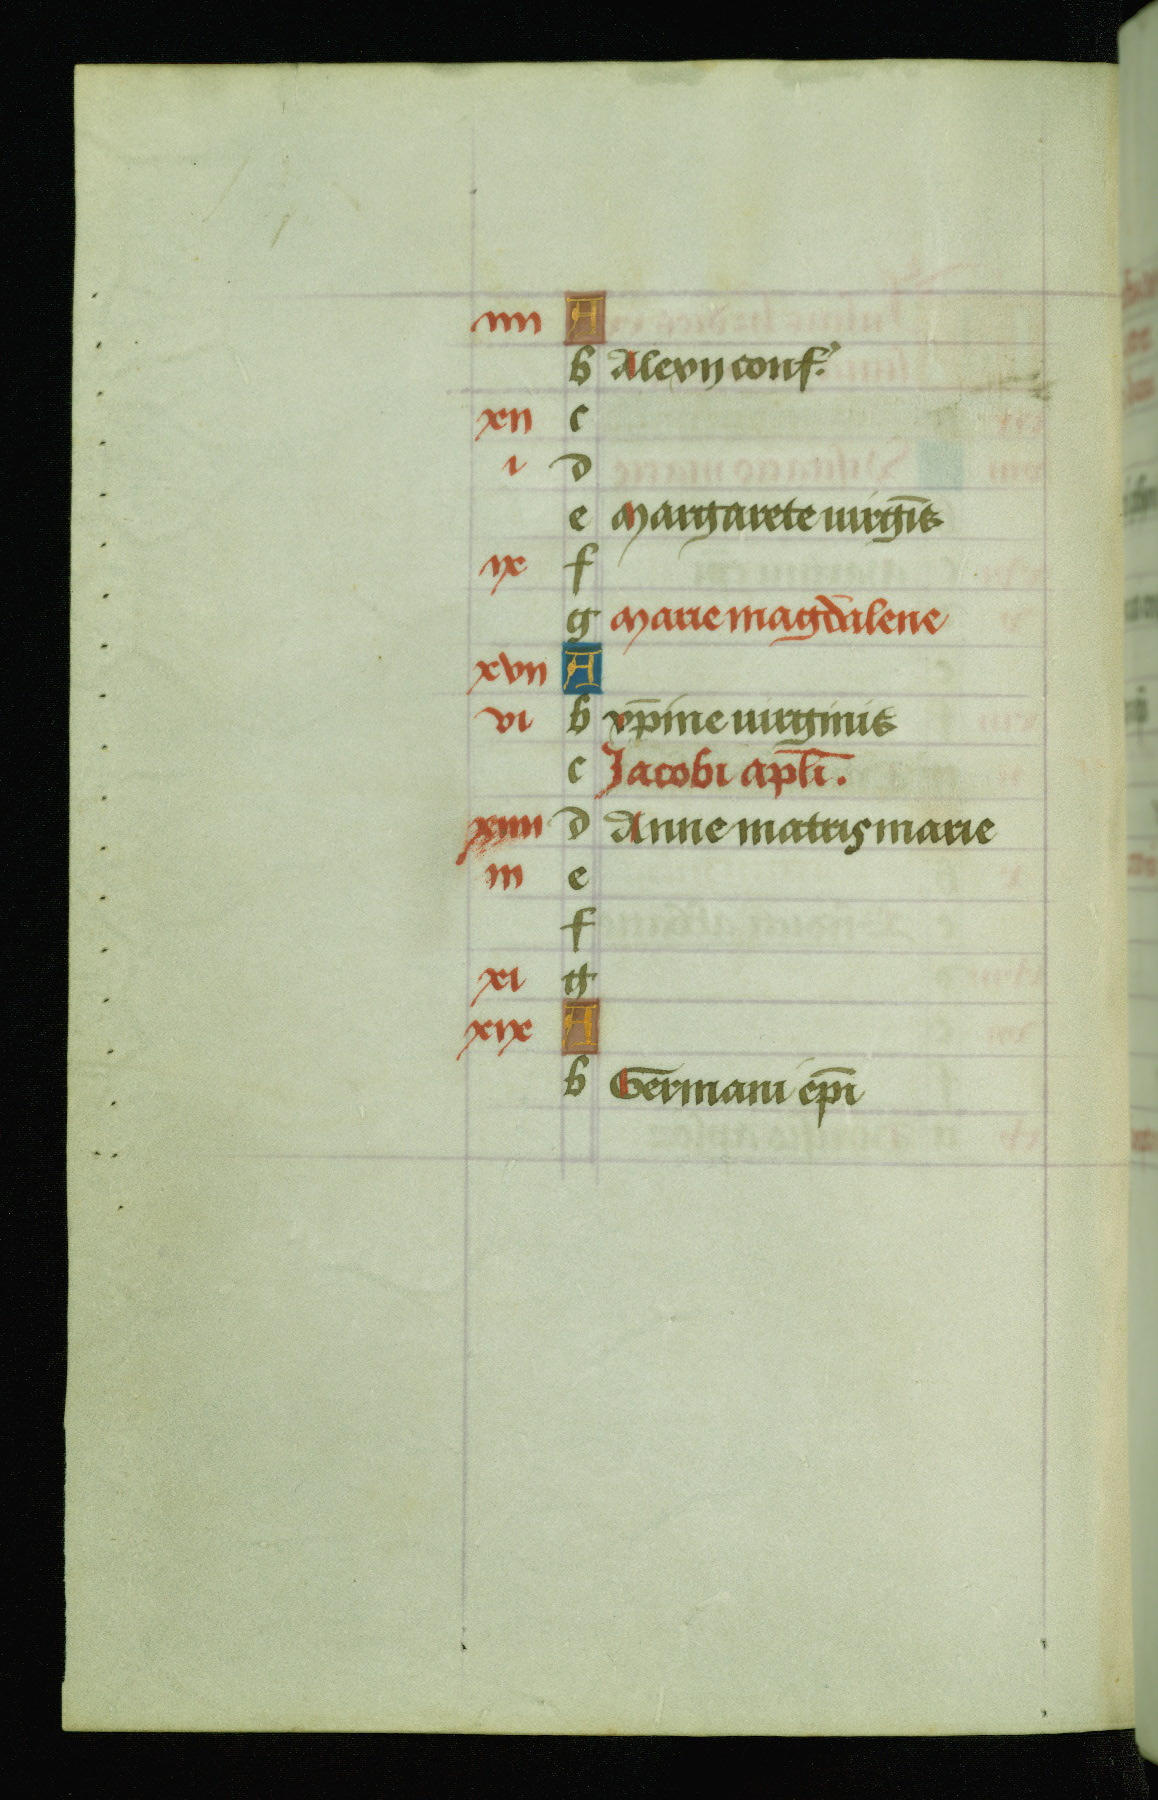 iiii A
b Alexii conf.
xii c
i d
e Margarete uirgīs
ix f
g Marie magdalene
xvii A
vi b xp̄ine uirginis
c Jacobi apl̄i.
xiiii d Anne matris marie
iii e
f
xi g
xix A
b Germani ep̄i